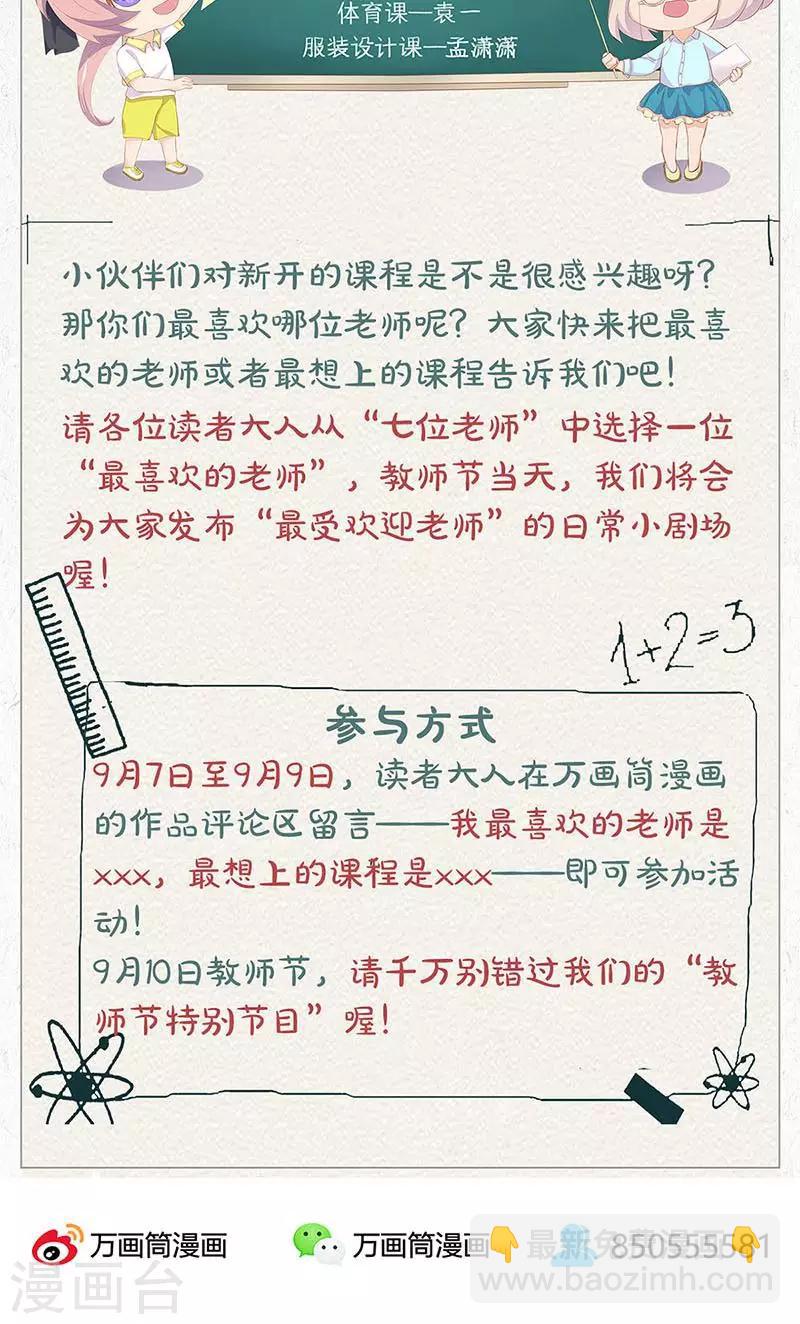 体育课—袁一
服装设计课—孟潇潇
小伙伴们对新开的课程是不是很感兴趣呀？
那你们最喜欢哪位老师呢？大家快来把最喜
欢的老师或者最想上的课程告诉我们吧！
请各位读者大人从“七位老师”中选择一位
“最喜欢的老师”，教师节当天，我们将会
为大家发布“最受欢迎老师”的日常小剧场
喔！
1+2=3
参与方式
9月7日至9月9日，读者大人在万画筒漫画
的作品评论区留言——我最喜欢的老师是
xxx，最想上的课程是xxx——即可参加活
动！
9月10日教师节，请千万别错过我们的“教
师节特别节目”喔！
万画筒漫画
万画筒漫画
最新免费漫画
850555581
漫画台
www.baozimh.com